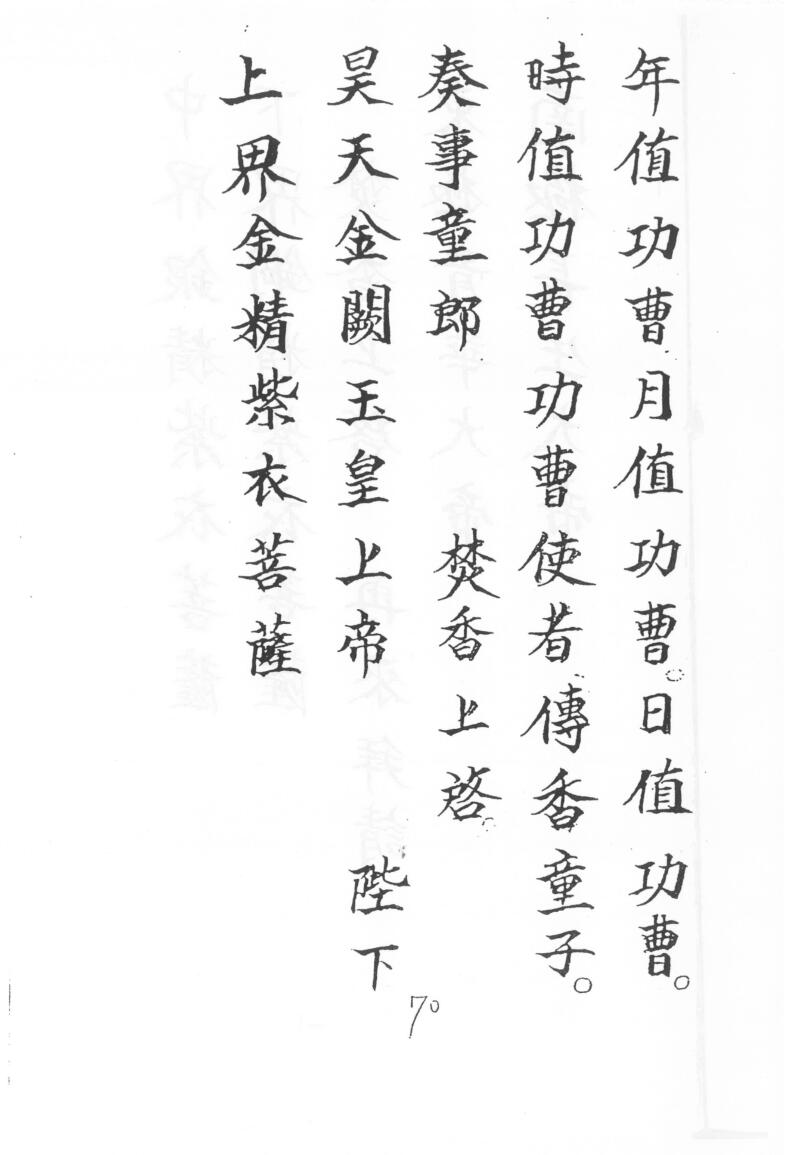 年值功曹月值功曹。日值功曹。
時值功曹功曹使者傳香童子。
奏事童郎 焚香上啓。
昊天金闕玉皇上帝 陛下
上界金精紫衣菩薩
70